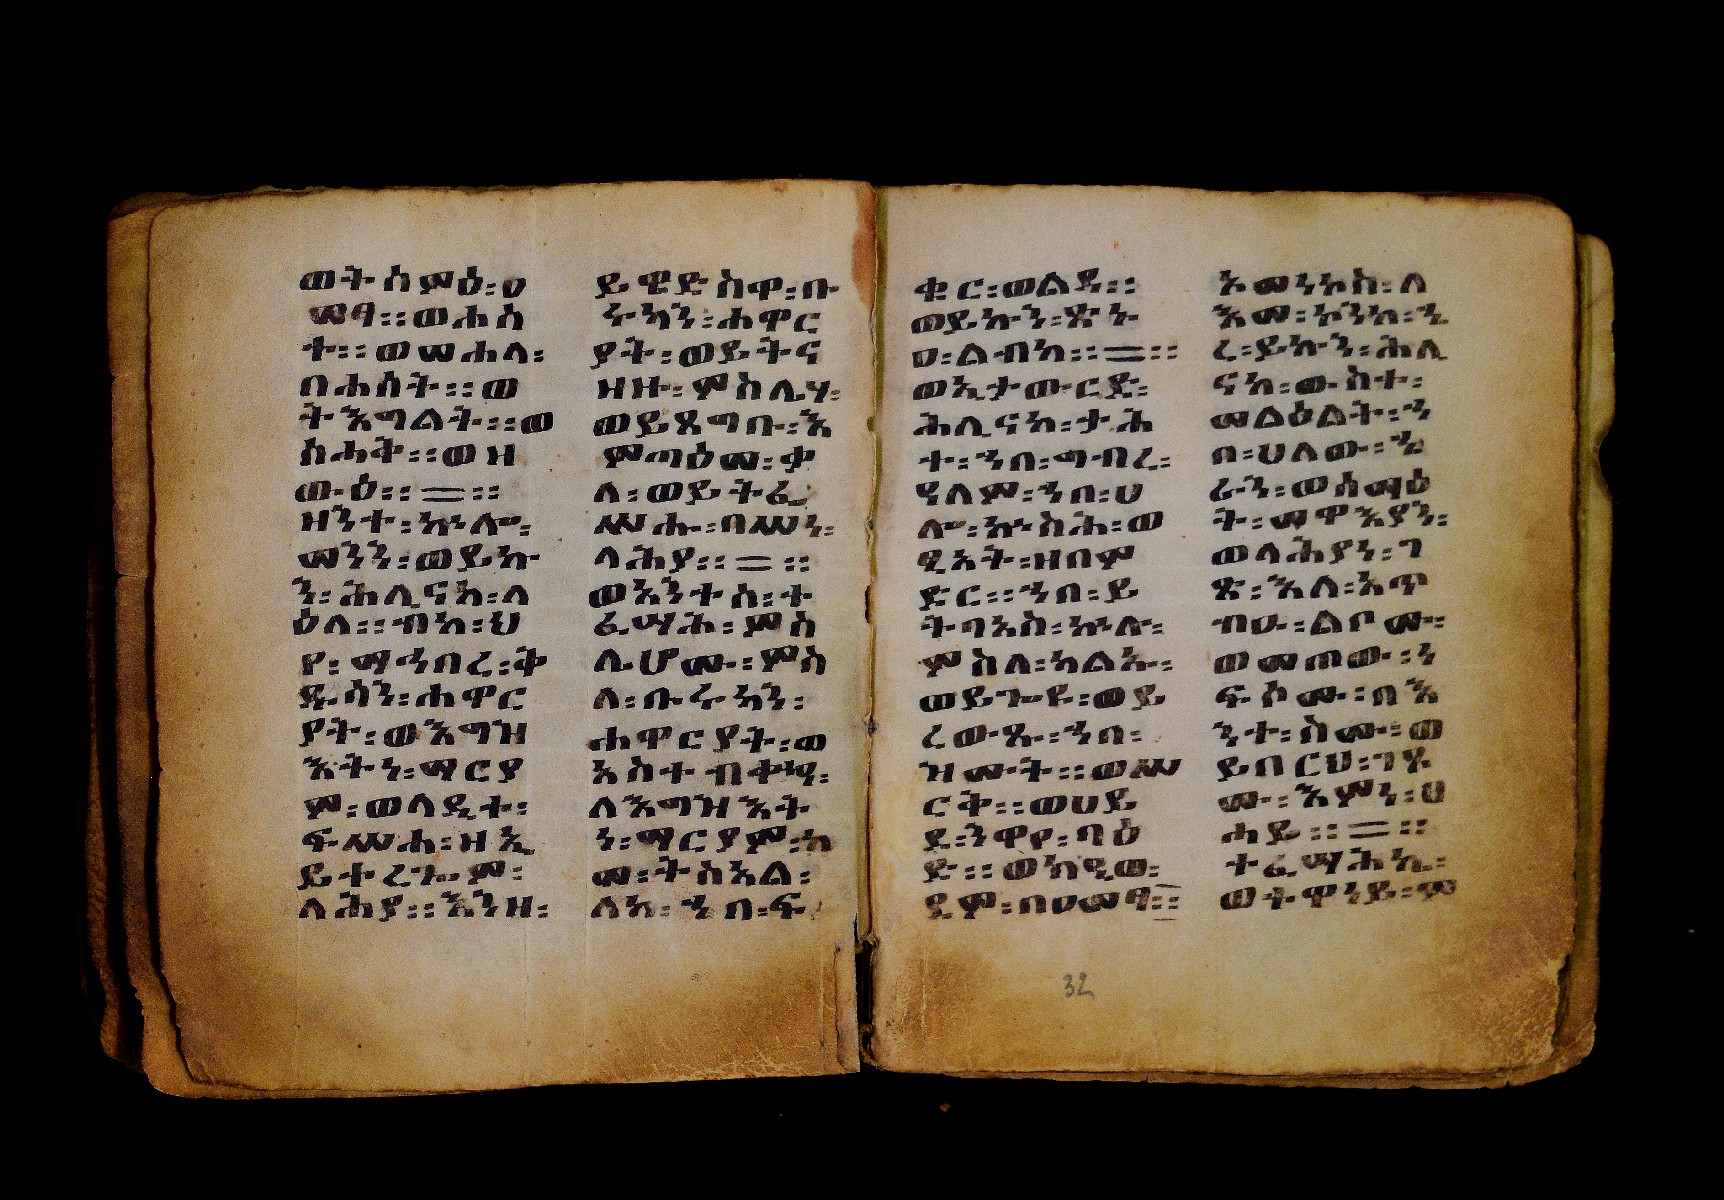 ወትሰምዕ፡ሀ
መፃ፡፡ወሐሰ
ተ፡፡ወመሐላ፡
በሐሰት፡፡ወ
ትእግልት፡፡ወ
ስሐት፡፡ወዝ
ውዕ፡፡=፡፡
ዝንተ፡ኵሎ፡
መንነ፡ወይኩ
ን፡ሕሊናከ፡ላ
ዕለ፡፡ብከ፡ህ
የ፡ማኅበረ፡ቅ
ዱሳን፡ሐዋር
ያት፡ወእግዝ
እትነ፡ማርያ
ም፡ወላዲተ፡
ፍሡሐ፡ዘኢ
ይተረጐም፡
ላሕያ፡፡እንዘ፡
ይዌድስዋ፡ቡ
ሩካን፡ሐዋር
ያት፡ወይትና
ዘዙ፡ምስሌሃ፡
ወይጸግቡ፡እ
ምጣዕመ፡ቃ
ላ፡ወይትፌ
ሥሑ፡በሥነ፡
ላሕያ፡፡=፡፡
ወአንተሰ፡ተ
ፈሣሕ፡ምስ
ሌሆሙ፡ምስ
ለ፡ቡሩካን፡
ሐዋርያት፡ወ
አስተብቍዓ፡
ለእግዝእት
ነ፡ማርያም፡ከ
መ፡ትስአል፡
ለከ፡ኀበ፡ፍ
ቁር፡ወልዳ፡፡
ወይኩን፡ጽኑ
ዐ፡ልብከ፡፡=፡፡
ወኢታውርድ፡
ሕሊናከ፡ታሕ
ተ፡ኀበ፡ግብረ፡
ሃለም፡ኀበ፡ሀ
ሎ፡ኵስሕ፡ወ
ዲአት፡ዘበም
ድር፡፡ኀበ፡ይ
ትባአስ፡ኵሉ፡
ምስለ፡ካልኡ፡
ወይጐይ፡ወይ
ረውጹ፡ኀበ፡
ዝሙት፡፡ወሥ
ርቅ፡፡ወሀይ
ደ፡ንዋየ፡ባዕ
ድ፡፡ወክዒወ፡
ደም፡በዐመፃ፡፡
አመንከሰ፡ለ
እመ፡ኮንከ፡ኄ
ረ፡ይኩን፡ሕሊ
ናከ፡ውስተ፡
መልዕልት፡ኀ
በ፡ሀለው፡ኄ
ራን፡ወሰማዕ
ት፡መዋእያን፡
ወላሕያነ፡ገ
ጽ፡እለ፡አጥ
ብዑ፡ልቦሙ፡
ወመጠው፡ነ
ፍሶሙ፡በእ
ንተ፡ስሙ፡ወ
ይበርህ፡ገጾ
ሙ፡እምነ፡ፀ
ሐይ፡፡=፡፡
ተፈሣሕኪ፡
ወተዋነይ፡ም
32